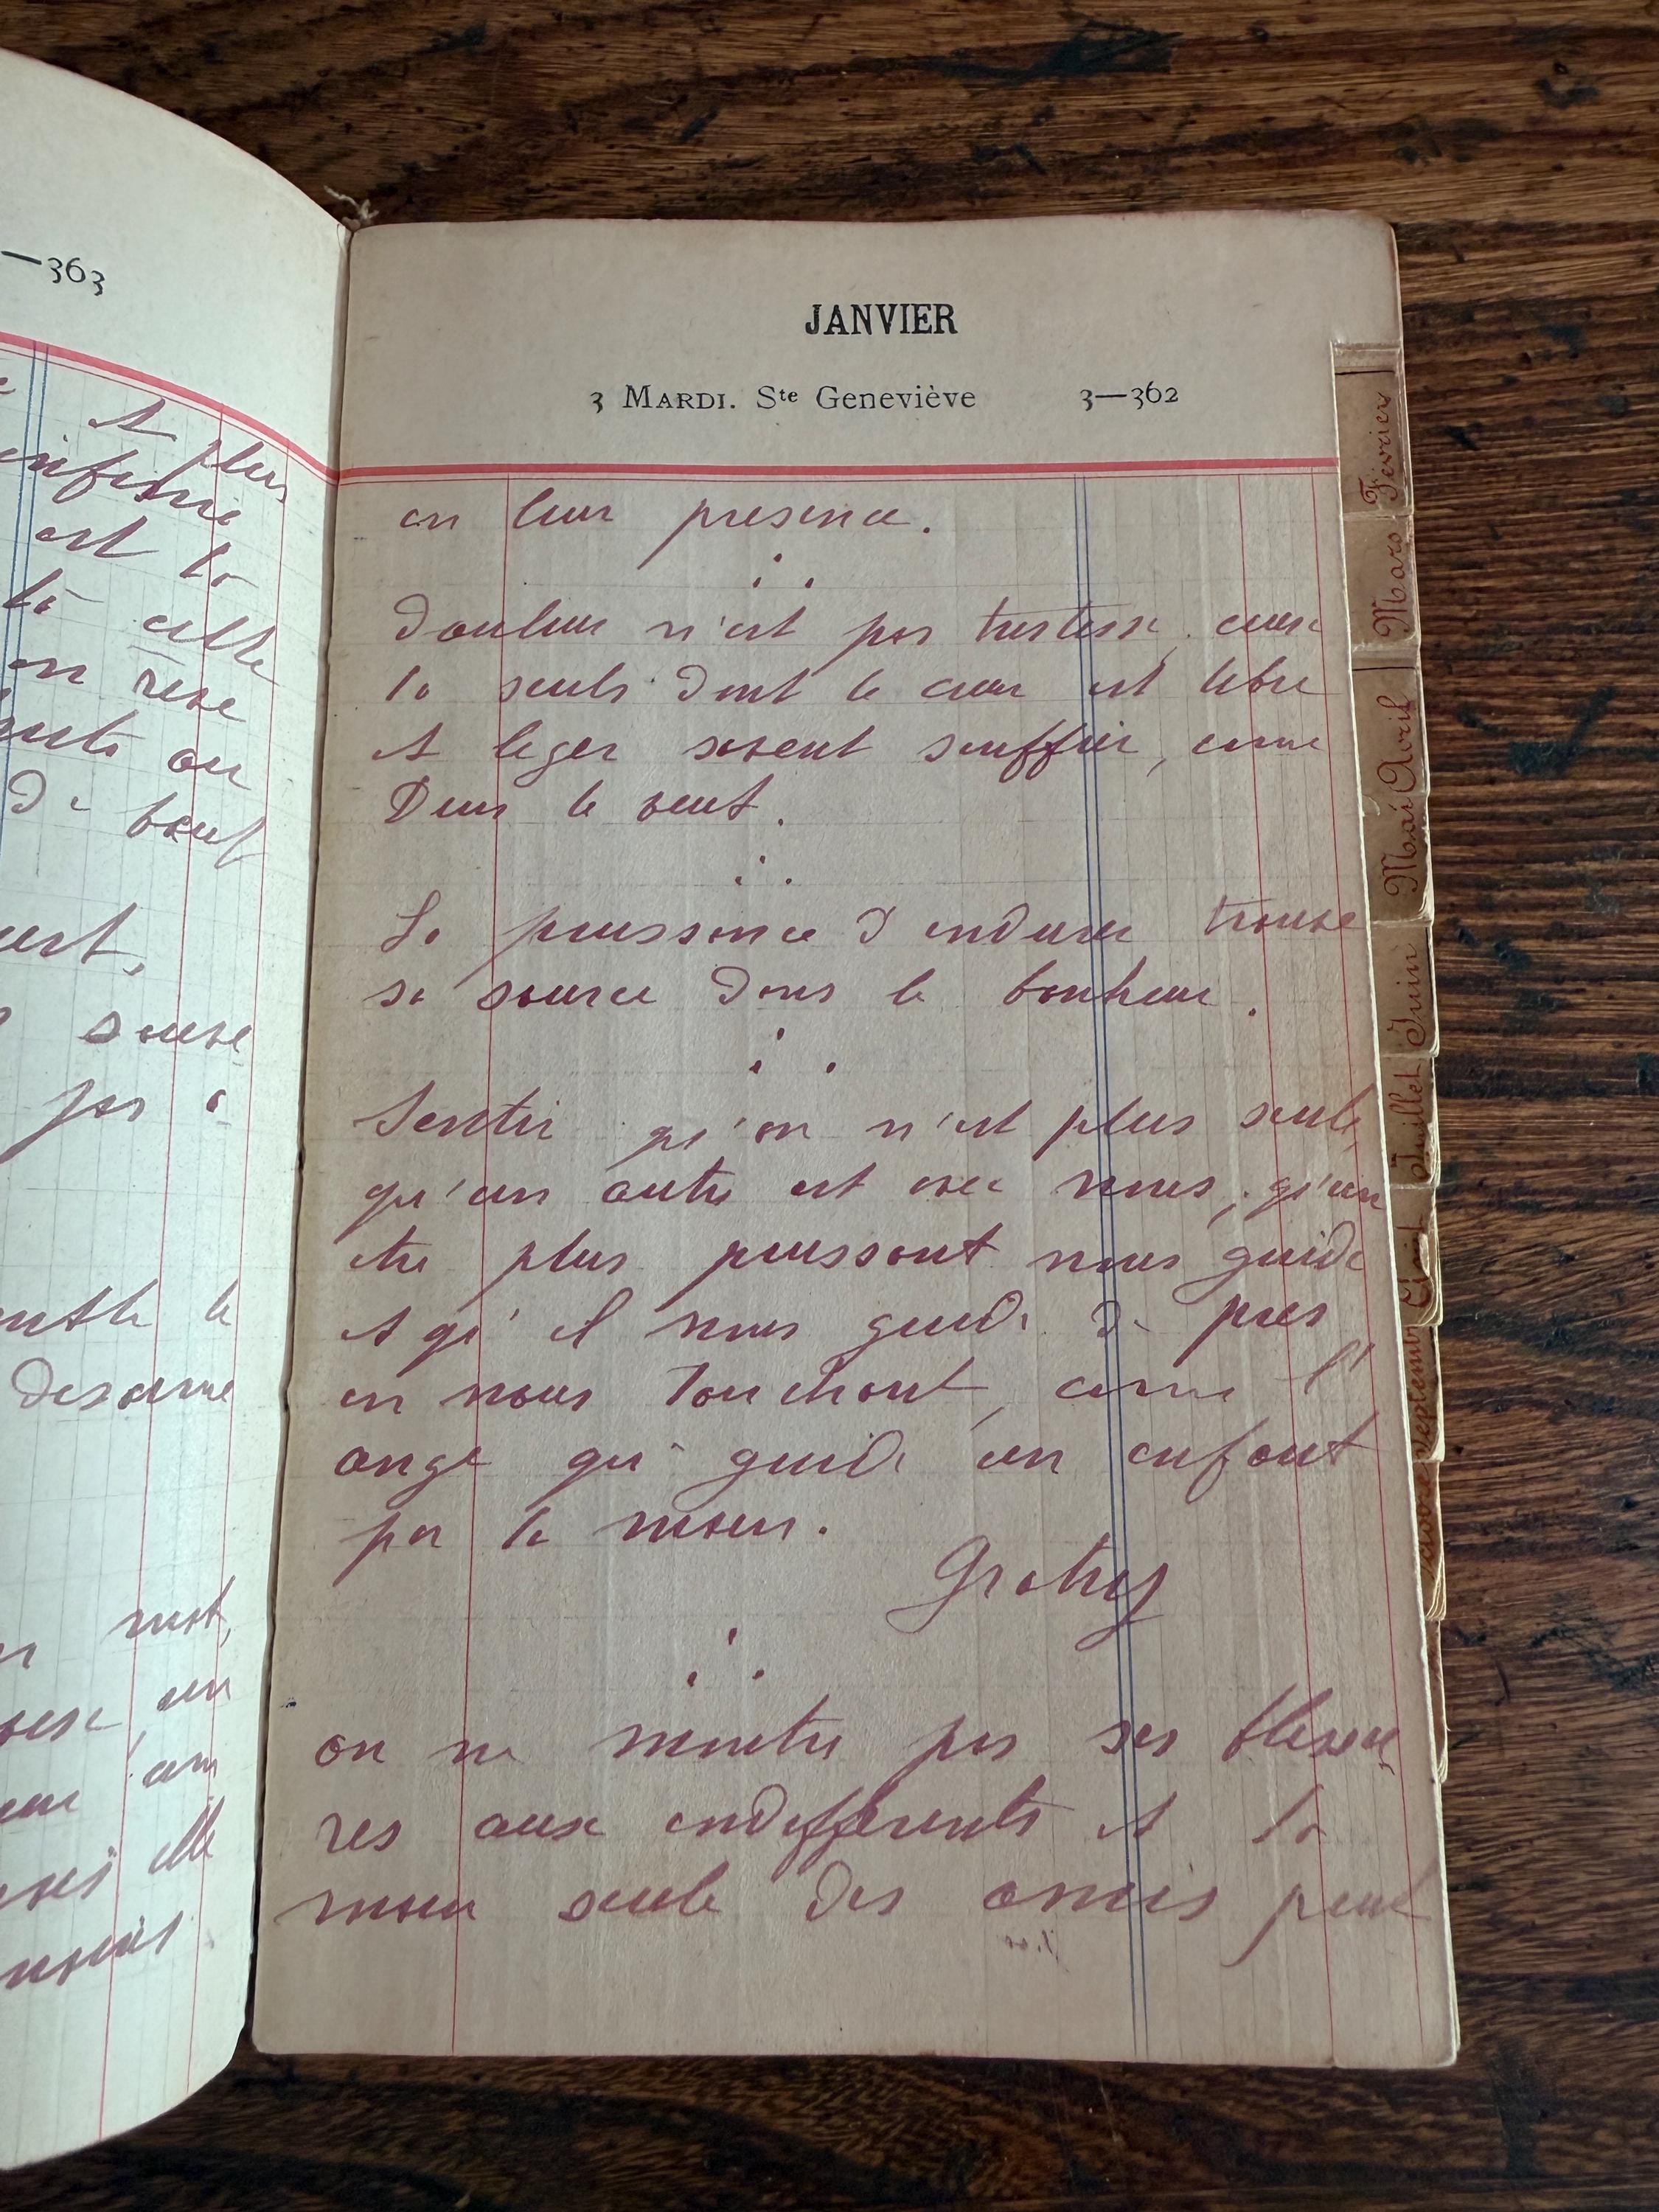 —363
et plus
infirme
est la
là cette
on rêve
ou
De bout
souve
pas à
le
desarme
elle
JANVIER
3 MARDI. Ste Geneviève 3—362
en leur presence.
Douleur n'est pas tristesse, ceux
la seuls dont le cœur est libre
et leger savent souffrir, come
Dieu le veut.
La puissance d'endurer trouve
sa source dans le bonheur.
Sentir qu'on n'est plus seule,
qu'un autre est avec nous, qu'un
etre plus puissant nous guide
et qu'il nous guide de pres
en nous touchant, come l'
ange qui guide un enfant
par la main.
Gratry
on ne montre pas ses blessu
res aux indifferents et la
main seule des amis peut
Fevrier
Mars
Avril
Mai
Juin
Juillet
Septembre